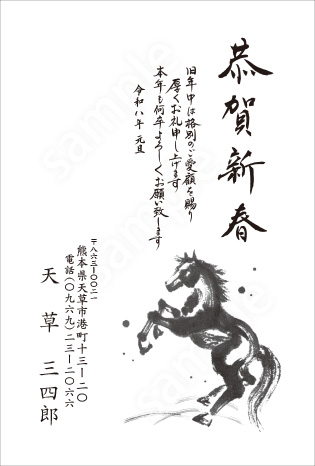 恭賀新春
旧年中は格別のご愛顧を賜り
厚くお礼申し上げます
本年も何卒よろしくお願い致します
令和八年 元旦
〒八六三-〇〇二一
熊本県天草市港町十三-二〇
電話(〇九六九)二三-二〇六六
天草 三四郎
sample